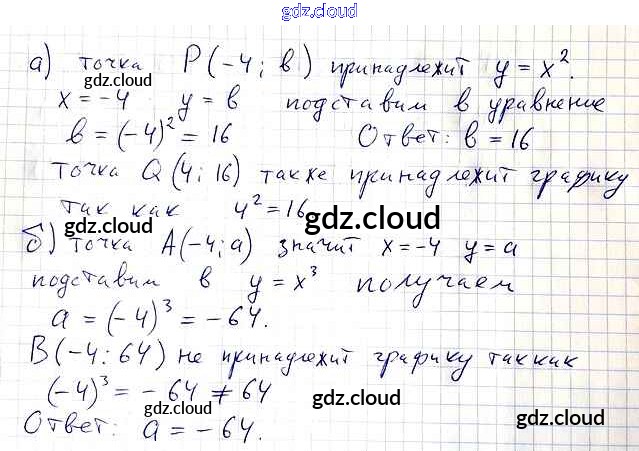 gdz.cloud
а) точка P(-4; b) принадлежит y = x².
gdz.cloud
x = -4 y = b подставим в уравнение
b = (-4)² = 16 Ответ: b = 16
точка Q(4; 16) также принадлежит графику
так как 4² = 16
gdz.cloud
б) точка A(-4; a) значит x = -4 y = a
gdz.cloud
подставим в y = x³ получаем
a = (-4)³ = -64.
B(-4; 64) не принадлежит графику так как
(-4)³ = -64 ≠ 64
gdz.cloud gdz.cloud gdz.cloud
Ответ: a = -64.